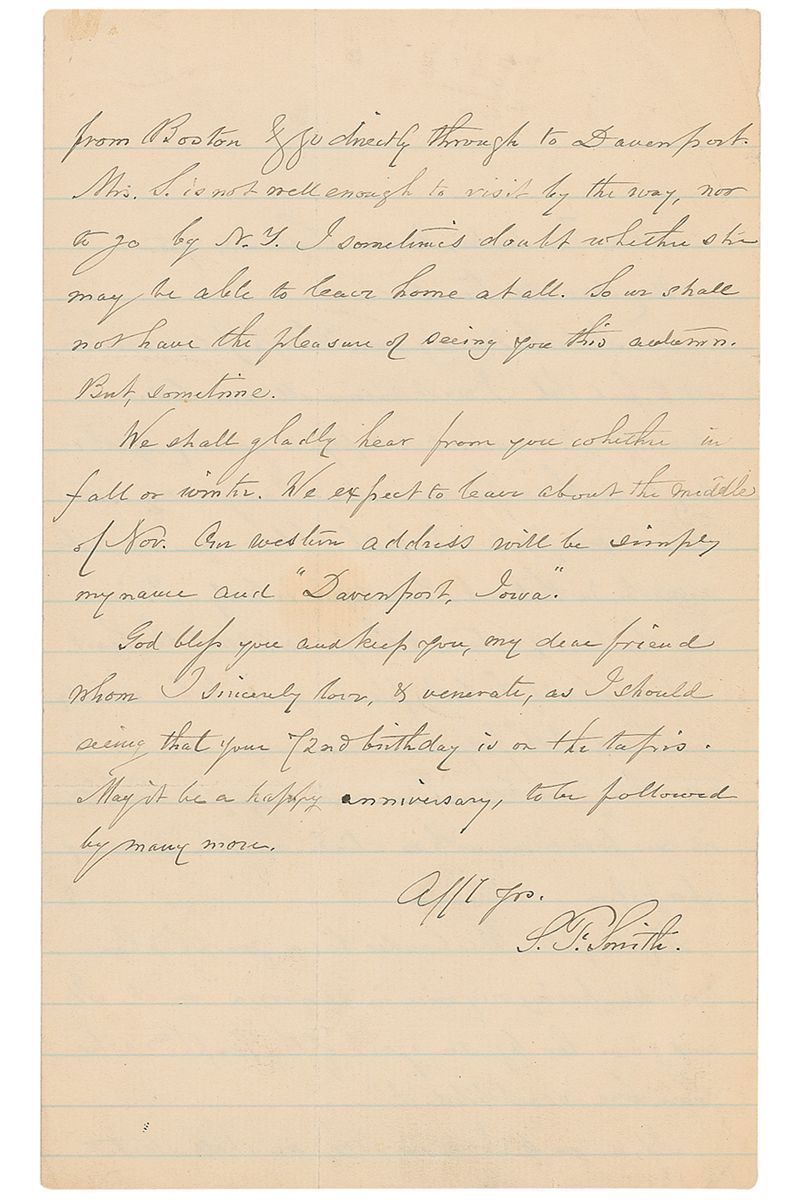 from Boston & go directly through to Davenport.
Mrs. S. is not well enough to visit by the way, nor
to go by N.Y. I sometimes doubt whether she
may be able to leave home at all. So we shall
not have the pleasure of seeing you this autumn.
But, sometime.
We shall gladly hear from you whether in
fall or winter. We expect to leave about the middle
of Nov. Our western address will be simply
my name and "Davenport, Iowa".
God bless you and keep you, my dear friend
whom I sincerely love, & venerate, as I should
seeing that your 72nd birthday is on the tapis.
May it be a happy anniversary, to be followed
by many more.
Aff'y yrs.
S. F. Smith.